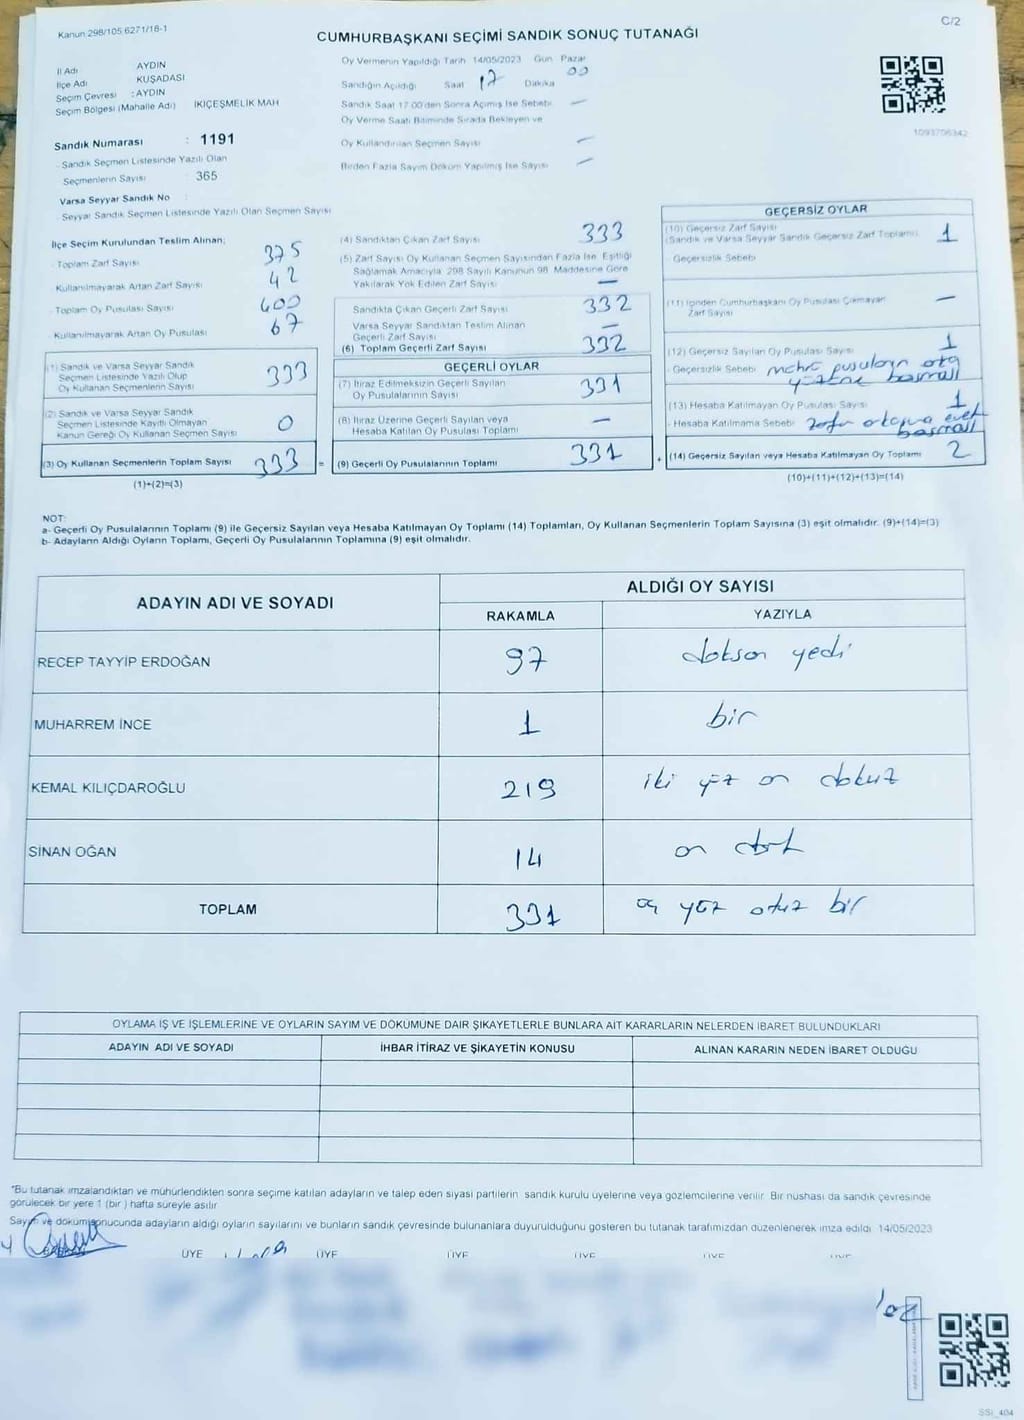 Kanun 298/105 6271/16-1
C/2
CUMHURBAŞKANI SEÇİMİ SANDIK SONUÇ TUTANAĞI
İl Adı AYDIN
İlçe Adı KUŞADASI
Seçim Çevresi : AYDIN
Seçim Bölgesi (Mahalle Adı) İKİÇEŞMELİK MAH
Sandık Numarası : 1191
Sandık Seçmen Listesinde Yazılı Olan
Seçmenlerin Sayısı 365
Varsa Seyyar Sandık No
Seyyar Sandık Seçmen Listesinde Yazılı Olan Seçmen Sayısı
Oy Vermenin Yapıldığı Tarih 14/05/2023 Gün Pazar
Sandığın Açıldığı Saat 17 Dakika 00
Sandık Saat 17:00'den Sonra Açılmış İse Sebebi —
Oy Verme Saati Bitiminde Sırada Bekleyen ve
Oy Kullandırılan Seçmen Sayısı —
Birden Fazla Sayım Döküm Yapılmış İse Sayısı —
1093706342
İlçe Seçim Kurulundan Teslim Alınan;
Toplam Zarf Sayısı 375
Kullanılmayarak Artan Zarf Sayısı 42
Toplam Oy Pusulası Sayısı 400
Kullanılmayarak Artan Oy Pusulası 67
(1) Sandık ve Varsa Seyyar Sandık
Seçmen Listesinde Yazılı Olup
Oy Kullanan Seçmenlerin Sayısı 333
(2) Sandık ve Varsa Seyyar Sandık
Seçmen Listesinde Kayıtlı Olmayan
Kanun Gereği Oy Kullanan Seçmen Sayısı 0
(3) Oy Kullanan Seçmenlerin Toplam Sayısı 333 =
(1)+(2)=(3)
(4) Sandıktan Çıkan Zarf Sayısı 333
(5) Zarf Sayısı Oy Kullanan Seçmen Sayısından Fazla İse, Eşitliği
Sağlamak Amacıyla 298 Sayılı Kanunun 98. Maddesine Göre
Yakılarak Yok Edilen Zarf Sayısı —
Sandıkta Çıkan Geçerli Zarf Sayısı 332
Varsa Seyyar Sandıktan Teslim Alınan
Geçerli Zarf Sayısı —
(6) Toplam Geçerli Zarf Sayısı 332
GEÇERLİ OYLAR
(7) İtiraz Edilmeksizin Geçerli Sayılan
Oy Pusulalarının Sayısı 331
(8) İtiraz Üzerine Geçerli Sayılan veya
Hesaba Katılan Oy Pusulası Toplamı —
(9) Geçerli Oy Pusulalarının Toplamı 331 +
GEÇERSİZ OYLAR
(10) Geçersiz Zarf Sayısı
(Sandık ve Varsa Seyyar Sandık Geçersiz Zarf Toplamı) 1
Geçersizlik Sebebi
(11) İçinden Cumhurbaşkanı Oy Pusulası Çıkmayan
Zarf Sayısı —
(12) Geçersiz Sayılan Oy Pusulası Sayısı 1
Geçersizlik Sebebi
(13) Hesaba Katılmayan Oy Pusulası Sayısı 1
Hesaba Katılmama Sebebi
(14) Geçersiz Sayılan veya Hesaba Katılmayan Oy Toplamı 2
(10)+(11)+(12)+(13)=(14)
NOT:
a- Geçerli Oy Pusulalarının Toplamı (9) ile Geçersiz Sayılan veya Hesaba Katılmayan Oy Toplamı (14) Toplamları, Oy Kullanan Seçmenlerin Toplam Sayısına (3) eşit olmalıdır. (9)+(14)=(3)
b- Adayların Aldığı Oyların Toplamı, Geçerli Oy Pusulalarının Toplamına (9) eşit olmalıdır.
ADAYIN ADI VE SOYADI
ALDIĞI OY SAYISI
RAKAMLA YAZIYLA
RECEP TAYYİP ERDOĞAN 97 doksan yedi
MUHARREM İNCE 1 bir
KEMAL KILIÇDAROĞLU 219 iki yüz on dokuz
SİNAN OĞAN 14 on dört
TOPLAM 331 üç yüz otuz bir
OYLAMA İŞ VE İŞLEMLERİNE VE OYLARIN SAYIM VE DÖKÜMÜNE DAİR ŞİKAYETLERLE BUNLARA AİT KARARLARIN NELERDEN İBARET BULUNDUKLARI
ADAYIN ADI VE SOYADI İHBAR İTİRAZ VE ŞİKAYETİN KONUSU ALINAN KARARIN NEDEN İBARET OLDUĞU
"Bu tutanak imzalandıktan ve mühürlendikten sonra seçime katılan adayların ve talep eden siyasi partilerin sandık kurulu üyelerine veya gözlemcilerine verilir. Bir nüshası da sandık çevresinde
görülecek bir yere 1 (bir) hafta süreyle asılır
Sayım ve döküm sonucunda adayların aldığı oyların sayılarını ve bunların sandık çevresinde bulunanlara duyurulduğunu gösteren bu tutanak tarafımızdan düzenlenerek imza edildi 14/05/2023
ÜYE ÜYE ÜYE ÜYE ÜYE ÜYE
SSI_404